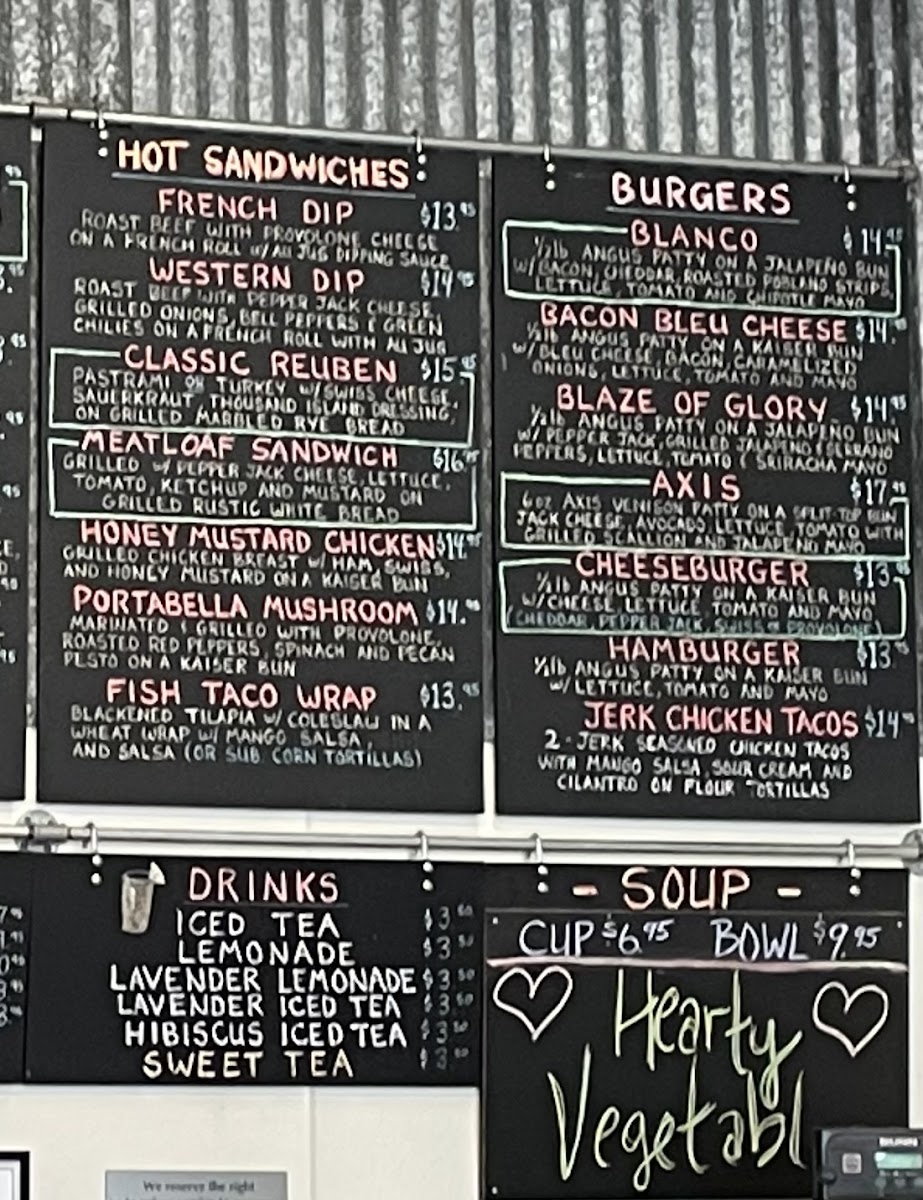 HOT SANDWICHES
FRENCH DIP $13.95
ROAST BEEF WITH PROVOLONE CHEESE
ON A FRENCH ROLL W/ AU JUS DIPPING SAUCE
WESTERN DIP $14.95
ROAST BEEF WITH PEPPER JACK CHEESE,
GRILLED ONIONS, BELL PEPPERS & GREEN
CHILIES ON A FRENCH ROLL WITH AU JUS
CLASSIC REUBEN $15.95
PASTRAMI OR TURKEY W/ SWISS CHEESE,
SAUERKRAUT, THOUSAND ISLAND DRESSING,
ON GRILLED MARBLED RYE BREAD
MEATLOAF SANDWICH $16.95
GRILLED W/ PEPPER JACK CHEESE, LETTUCE,
TOMATO, KETCHUP AND MUSTARD ON
GRILLED RUSTIC WHITE BREAD
HONEY MUSTARD CHICKEN $14.95
GRILLED CHICKEN BREAST W/ HAM, SWISS,
AND HONEY MUSTARD ON A KAISER BUN
PORTABELLA MUSHROOM $14.95
MARINATED & GRILLED WITH PROVOLONE,
ROASTED RED PEPPERS, SPINACH AND PECAN
PESTO ON A KAISER BUN
FISH TACO WRAP $13.95
BLACKENED TILAPIA W/ COLESLAW IN A
WHEAT WRAP W/ MANGO SALSA,
AND SALSA (OR SUB CORN TORTILLAS)
BURGERS
BLANCO $14.95
1/2 lb ANGUS PATTY ON A JALAPEÑO BUN
W/ BACON, CHEDDAR, ROASTED POBLANO STRIPS,
LETTUCE, TOMATO AND CHIPOTLE MAYO
BACON BLEU CHEESE $14.95
1/2 lb ANGUS PATTY ON A KAISER BUN
W/ BLEU CHEESE, BACON, CARAMELIZED
ONIONS, LETTUCE, TOMATO AND MAYO
BLAZE OF GLORY $14.95
1/2 lb ANGUS PATTY ON A JALAPEÑO BUN
W/ PEPPER JACK, GRILLED JALAPEÑO & SERRANO
PEPPERS, LETTUCE, TOMATO & SRIRACHA MAYO
AXIS $17.95
6 oz AXIS VENISON PATTY ON A SPLIT-TOP BUN
JACK CHEESE, AVOCADO, LETTUCE, TOMATO WITH
GRILLED SCALLION AND JALAPEÑO MAYO
CHEESEBURGER $13.95
1/2 lb ANGUS PATTY ON A KAISER BUN
W/ CHEESE, LETTUCE, TOMATO AND MAYO
(CHEDDAR, PEPPER JACK, SWISS OR PROVOLONE)
HAMBURGER $13.95
1/2 lb ANGUS PATTY ON A KAISER BUN
W/ LETTUCE, TOMATO AND MAYO
JERK CHICKEN TACOS $14.95
2 - JERK SEASONED CHICKEN TACOS
WITH MANGO SALSA, SOUR CREAM AND
CILANTRO ON FLOUR TORTILLAS
DRINKS
ICED TEA $3.50
LEMONADE $3.50
LAVENDER LEMONADE $3.50
LAVENDER ICED TEA $3.50
HIBISCUS ICED TEA $3.50
SWEET TEA $3.50
- SOUP -
CUP $6.95 BOWL $9.95
Hearty
Vegetabl
We reserve the right